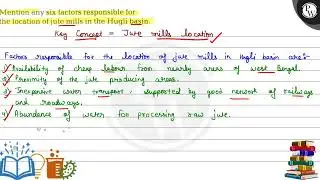 Mention any six factors responsible for
the location of jute mills in the Hugli basin.
Key Concept = Jute mills location
Factors responsible for the location of jute mills in Hugli basin are:-
1) Availability of cheap labour from nearly areas of west Bengal.
2) Proximity of the jute producing areas.
3) Inexpensive water transport, supported by good network of railways
and roadways.
4) Abundance of water for processing raw jute.